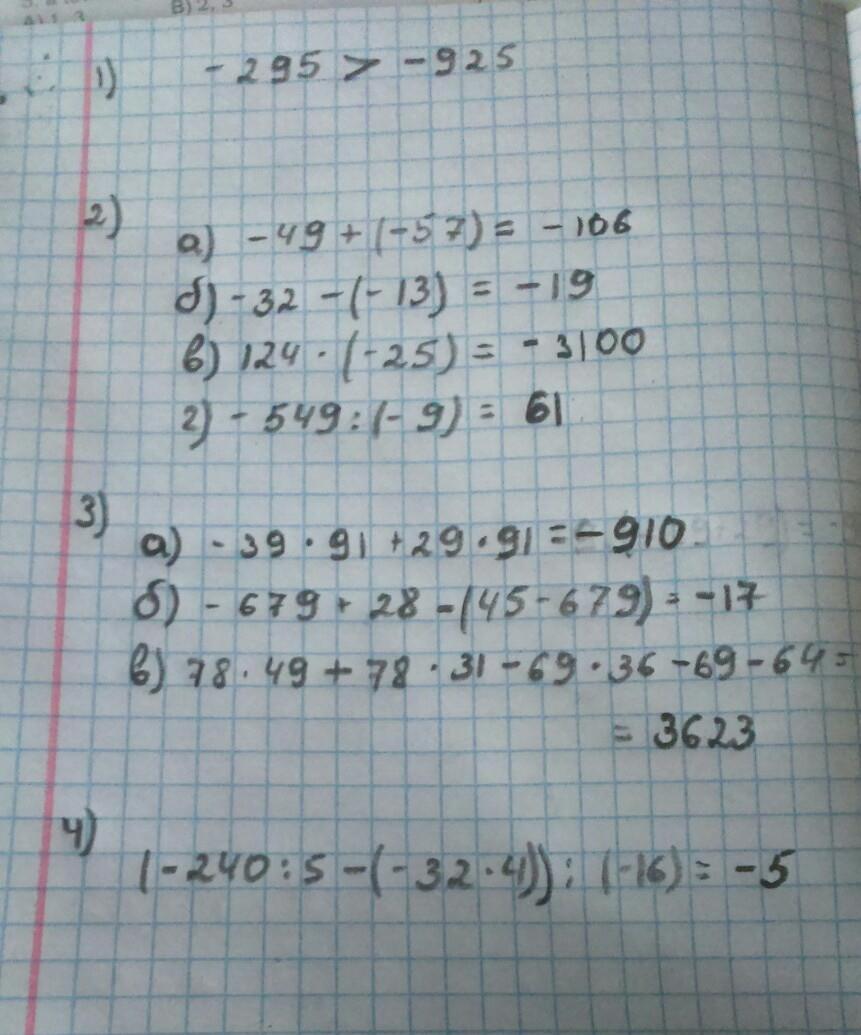 В) 2, 3
1) -295 > -925
2)
а) -49 + (-57) = -106
б) -32 - (-13) = -19
в) 124 · (-25) = -3100
г) -549 : (-9) = 61
3)
а) -39 · 91 + 29 · 91 = -910
б) -679 + 28 - (45 - 679) = -17
в) 78 · 49 + 78 · 31 - 69 · 36 - 69 - 64 =
= 3623
4)
(-240 : 5 - (-32 · 4)) : (-16) = -5